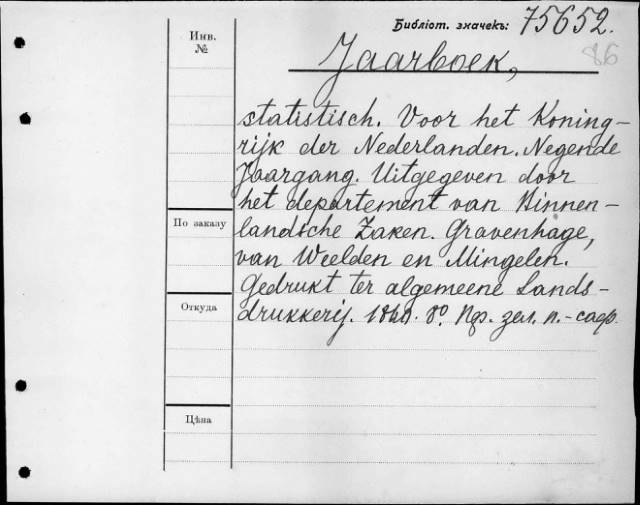 Библіот. значекъ: 75652.
86
Инв.
№
Jaarboek,
statistisch. Voor het Koning-
rijk der Nederlanden. Negende
Jaargang. Uitgegeven door
het departement van Binnen-
По заказу
landsche Zaken. Gravenhage,
van Weelden en Mingelen.
Gedrukt ter algemeene Lands-
Откуда
drukkerij. 1860. 8°. Пр. зел. п.-саф.
Цѣна